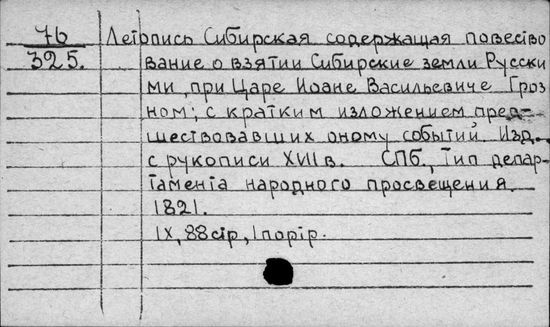 76
325.
Летопись Сибирская содержащая повество
вание о взятии Сибирские земли Русски
ми, при Царе Иоане Васильевиче Гроз
ном; с кратким изложением пред-
шествовавших оному событий. Изд.
с рукописи XVII в. СПб., Тип департ
тамента народного просвещения.
1821.
IX, 88 стр, 1 портр.